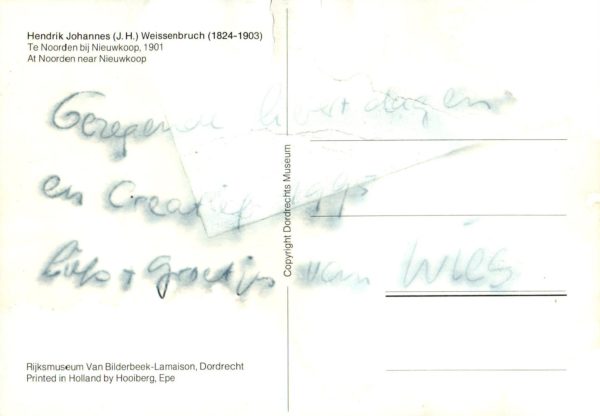 Hendrik Johannes (J.H.) Weissenbruch (1824-1903)
Te Noorden bij Nieuwkoop, 1901
At Noorden near Nieuwkoop
Gezegende kerstdagen
en Creatief 1995
liefs + groetjes van Wies
Copyright Dordrechts Museum
Rijksmuseum Van Bilderbeek-Lamaison, Dordrecht
Printed in Holland by Hooiberg, Epe